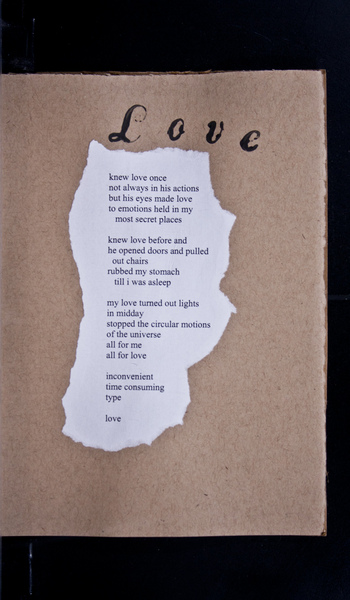 Love
knew love once
not always in his actions
but his eyes made love
to emotions held in my
most secret places
knew love before and
he opened doors and pulled
out chairs
rubbed my stomach
till i was asleep
my love turned out lights
in midday
stopped the circular motions
of the universe
all for me
all for love
inconvenient
time consuming
type
love